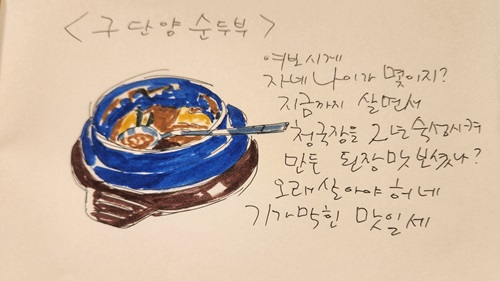 <구 단양 순두부>
여보시게
자네 나이가 몇이지?
지금까지 살면서
청국장을 2년 숙성시켜
만든 된장맛 보셨나?
오래 살아야 허네
기가막힌 맛일세